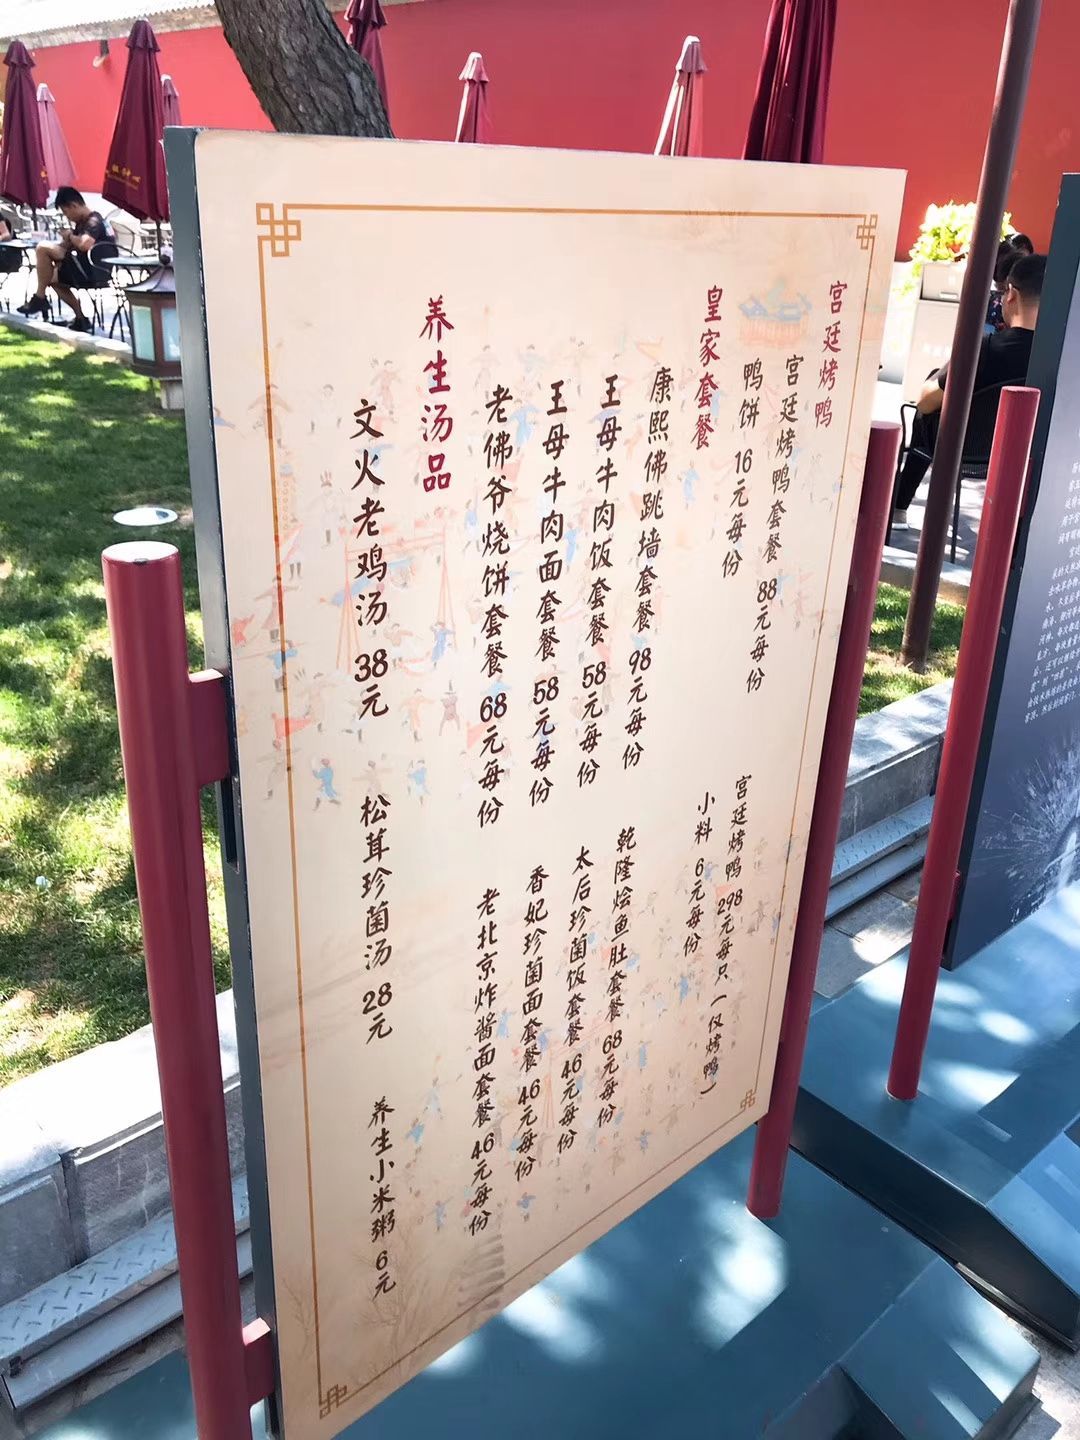 宫廷烤鸭
宫廷烤鸭套餐 88元每份
宫廷烤鸭 298元每只（仅烤鸭）
鸭饼 16元每份
小料 6元每份
皇家套餐
康熙佛跳墙套餐 98元每份
乾隆烩鱼肚套餐 68元每份
王母牛肉饭套餐 58元每份
太后珍菌饭套餐 46元每份
王母牛肉面套餐 58元每份
香妃珍菌面套餐 46元每份
老佛爷烧饼套餐 68元每份
老北京炸酱面套餐 46元每份
养生汤品
文火老鸡汤 38元
松茸珍菌汤 28元
养生小米粥 6元